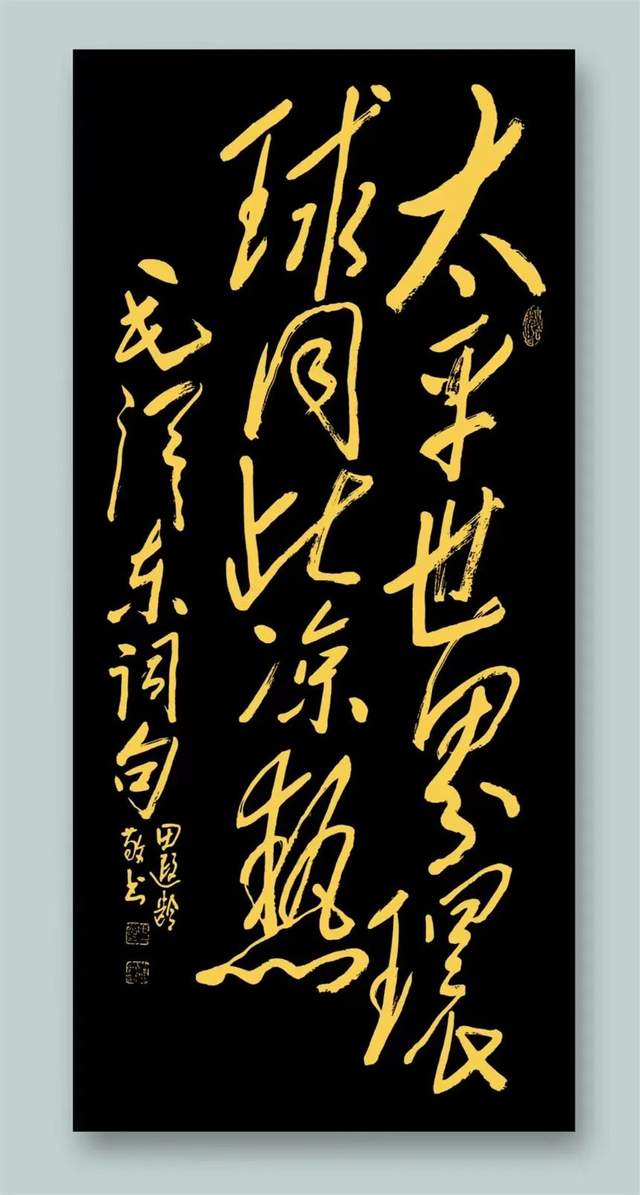 太平世界环
球同此凉热
毛泽东词句
田遐龄
敬书